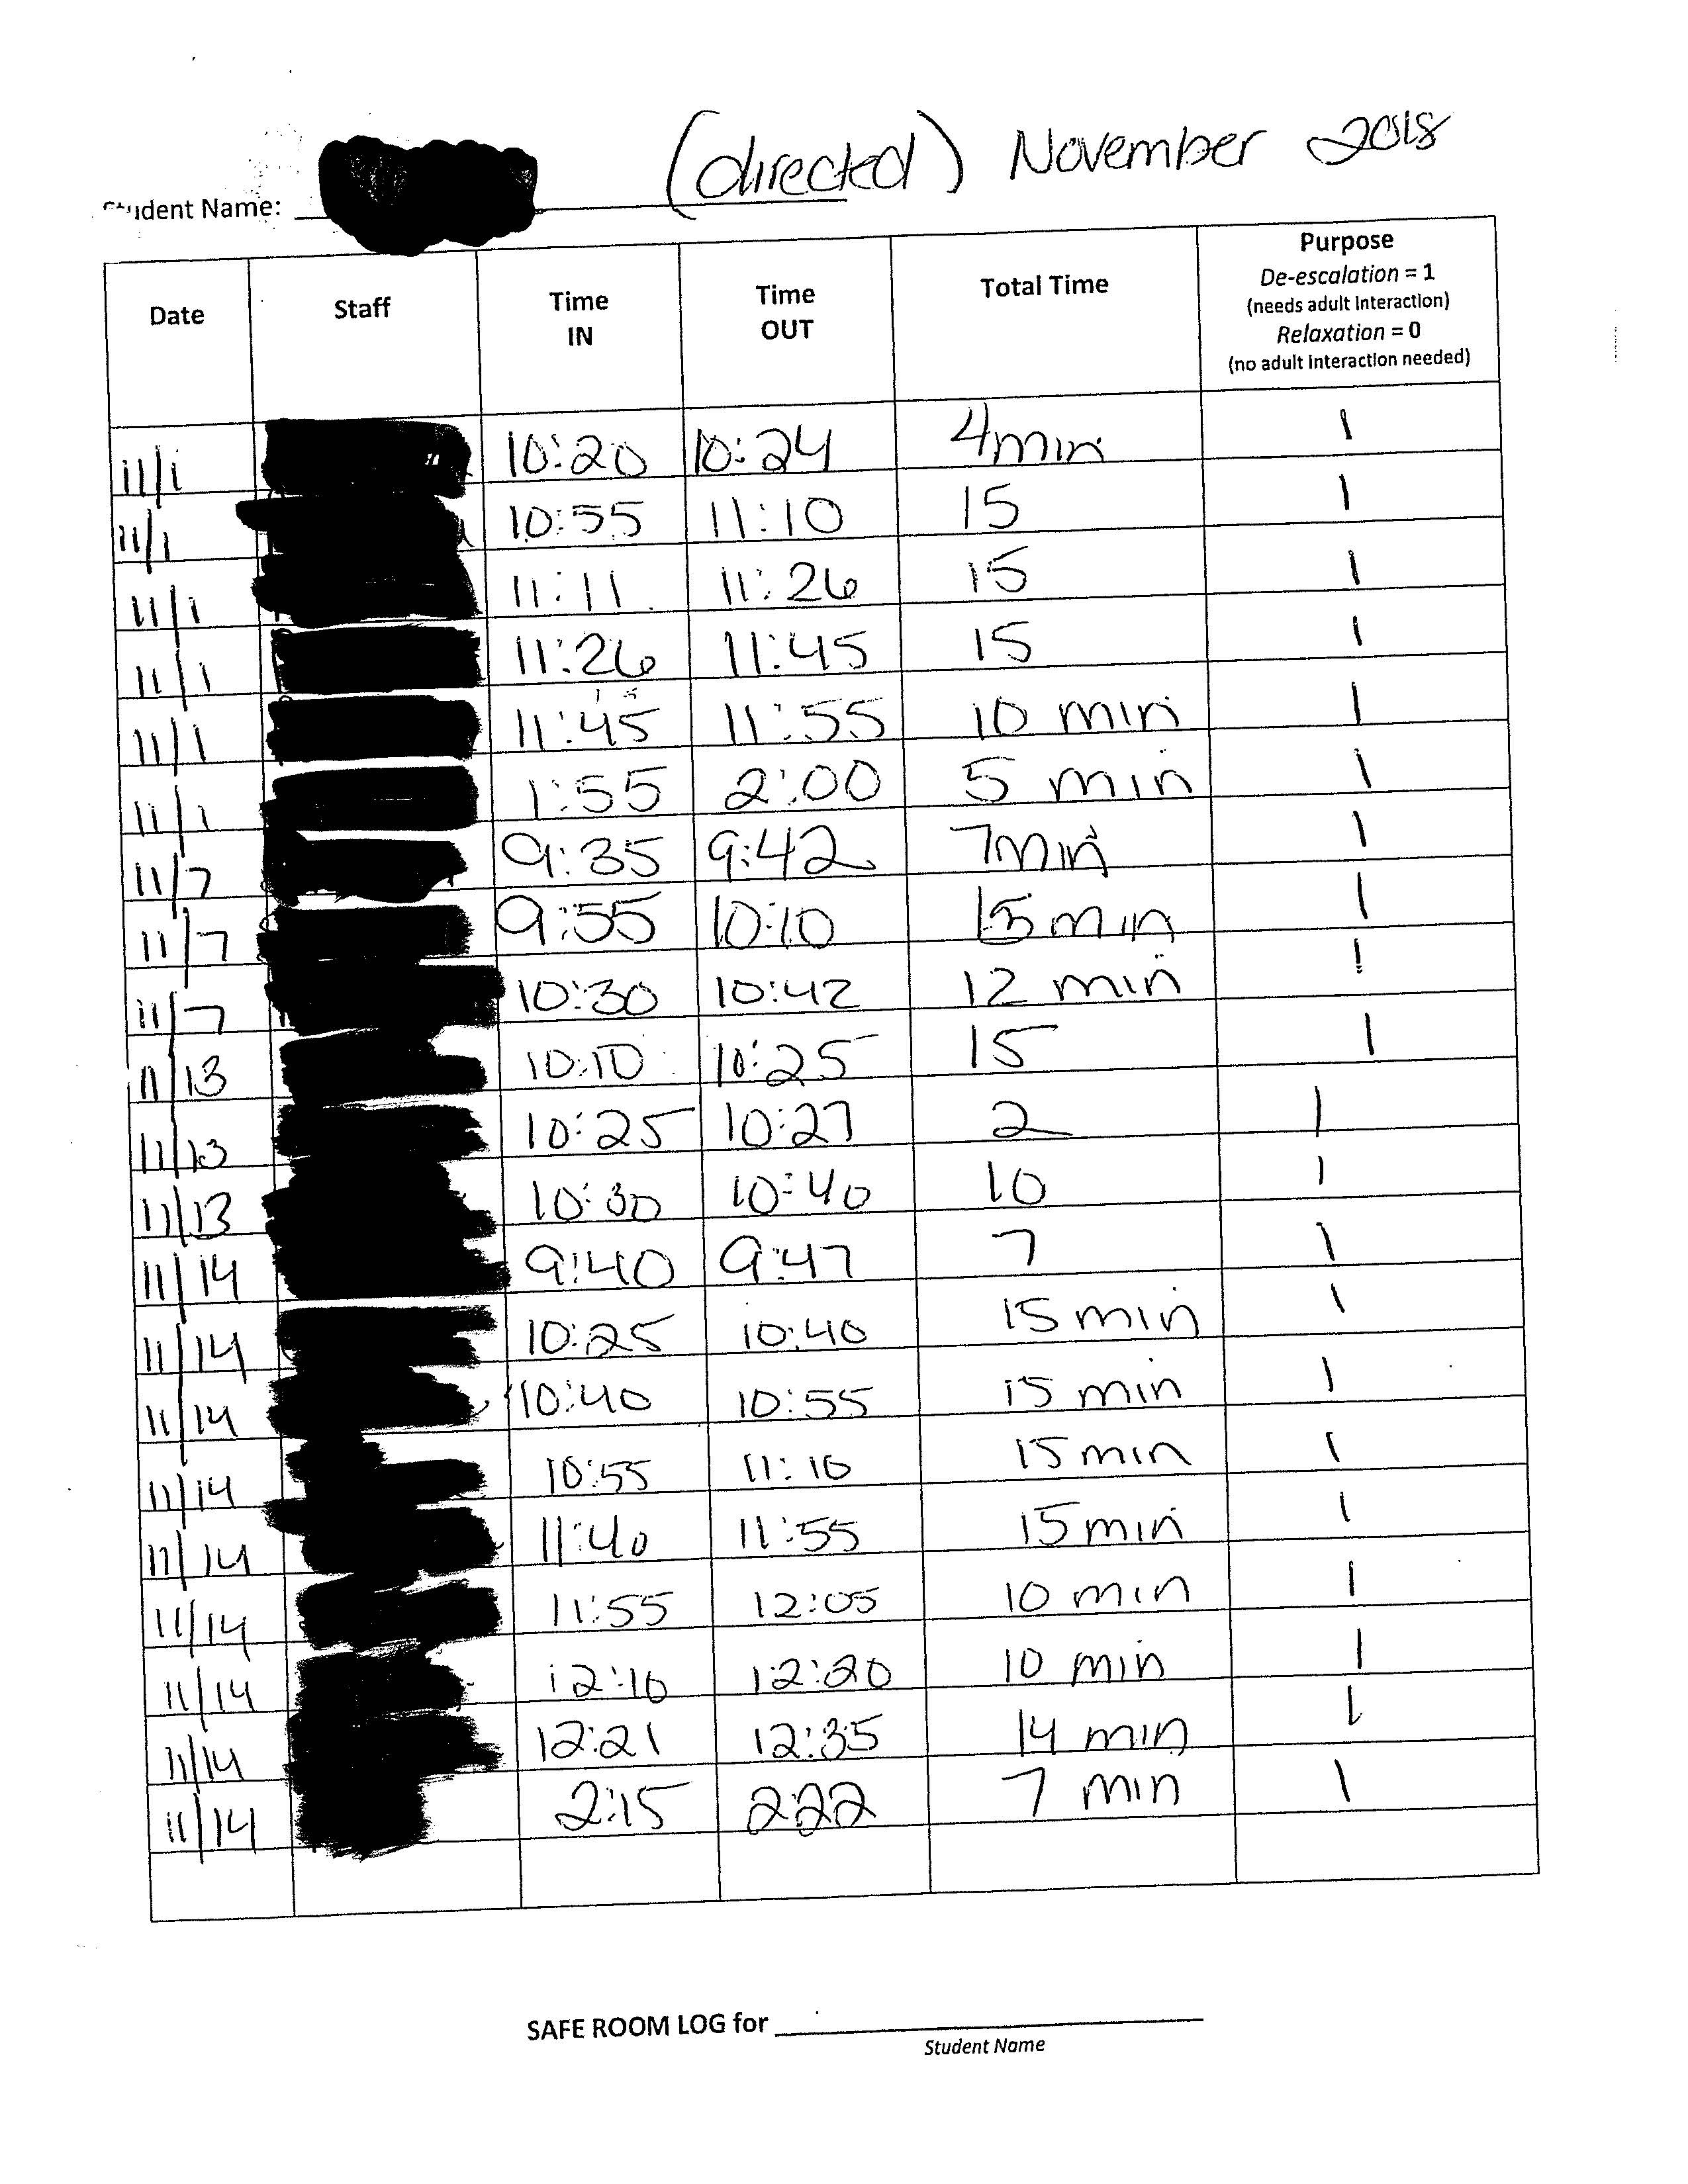 (directed) November 2018
Student Name:
Date Staff Time IN Time OUT Total Time Purpose
De-escalation = 1
(needs adult interaction)
Relaxation = 0
(no adult interaction needed)
11/1 10:20 10:24 4min 1
11/1 10:55 11:10 15 1
11/1 11:11 11:26 15 1
11/1 11:26 11:45 15 1
11/1 11:45 11:55 10 min 1
11/1 1:55 2:00 5 min 1
11/7 9:35 9:42 7min 1
11/7 9:55 10:10 15 min 1
11/7 10:30 10:42 12 min 1
11/13 10:10 10:25 15 1
11/13 10:25 10:27 2 1
11/13 10:30 10:40 10 1
11/14 9:40 9:47 7 1
11/14 10:25 10:40 15 min 1
11/14 10:40 10:55 15 min 1
11/14 10:55 11:10 15 min 1
11/14 11:40 11:55 15 min 1
11/14 11:55 12:05 10 min 1
11/14 12:10 12:20 10 min 1
11/14 12:21 12:35 14 min 1
11/14 2:15 2:22 7 min 1
SAFE ROOM LOG for
Student Name